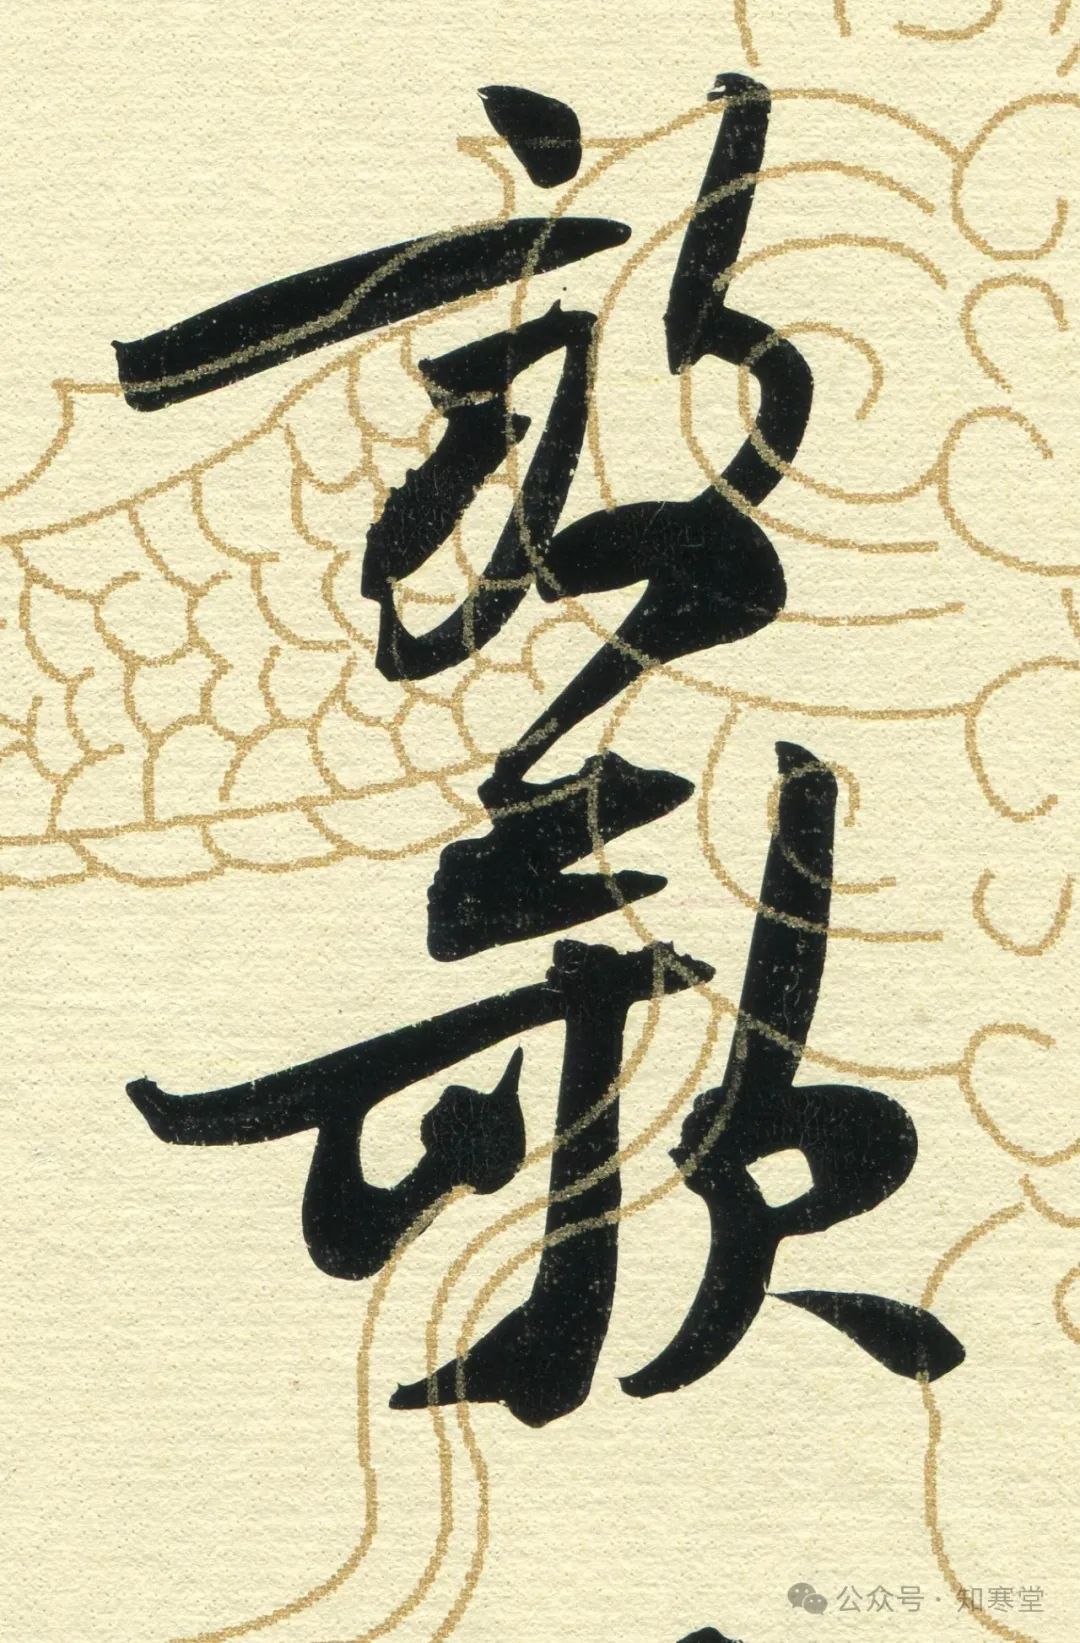 放歌
公众号 · 知寒堂